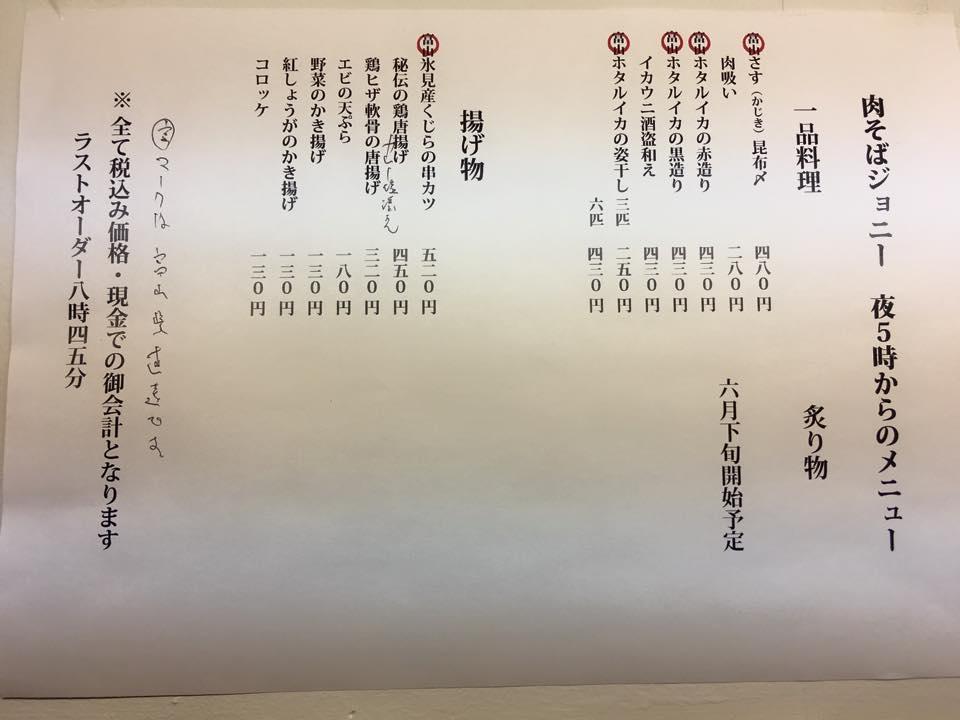 肉そばジョニー　夜5時からのメニュー
一品料理
富山 さす（かじき）昆布〆　四八〇円
肉吸い　二八〇円
富山 ホタルイカの赤造り　四三〇円
富山 ホタルイカの黒造り　四三〇円
イカウニ酒盗和え　四三〇円
富山 ホタルイカの姿干し　三匹　二五〇円
六匹　四三〇円
炙り物
六月下旬開始予定
揚げ物
富山 氷見産くじらの串カツ　五二〇円
秘伝の鶏唐揚げ　四五〇円
鶏ヒザ軟骨の唐揚げ　三二〇円
エビの天ぷら　一八〇円
野菜のかき揚げ　一三〇円
紅しょうがのかき揚げ　一三〇円
コロッケ　一三〇円
マークは富山県直送です
※全て税込み価格・現金での御会計となります
ラストオーダー八時四五分